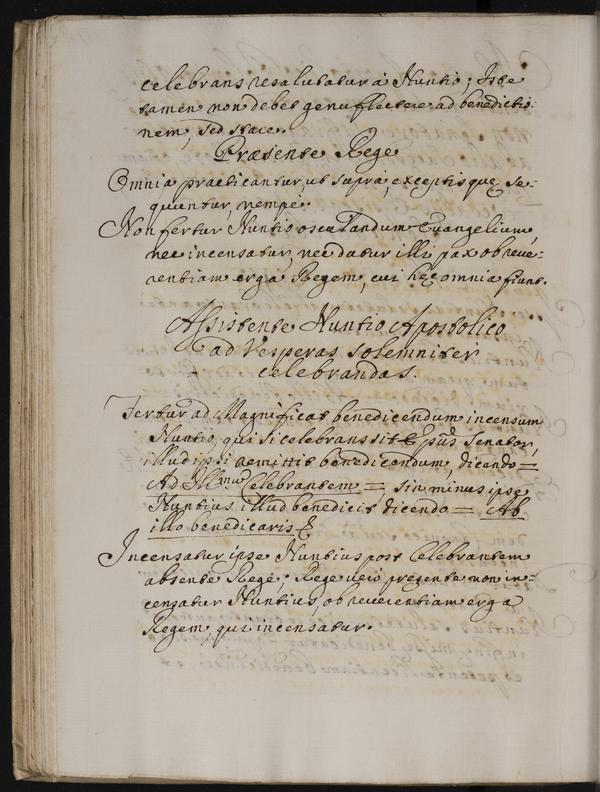 celebrans resalutatur à Nuntio; Iste
tamen non debet genuflectere ad benedictio:
nem, sed stare.
Præsente Rege
Omnia practicantur, ut supra, exceptis quę se-
quuntur, nempè.
Non fertur Nuntio osculandum Evangelium,
nec incensatur, nec datur illi pax ob reve-
rentiam erga Regem, cui hęc omnia fiunt.
Assistente Nuntio Apostolico
ad Vesperas solemniter
celebrandas.
Fertur ad Magnificat benedicendum incensum
Nuntio, qui si celebrans sit Epũs Senator,
illud ipsi remittit benedicendum, dicendo=
Ad Ill.mũ Celebrantem= sin minus ipse
Nuntius illud benedicit dicendo= Ab
illo benedicaris &
Incensatur ipse Nuntius post Celebrantem
absente Rege; Rege verò pręsente non in-
censatur Nuntius, ob reverentiam erga
Regem, qui incensatur.